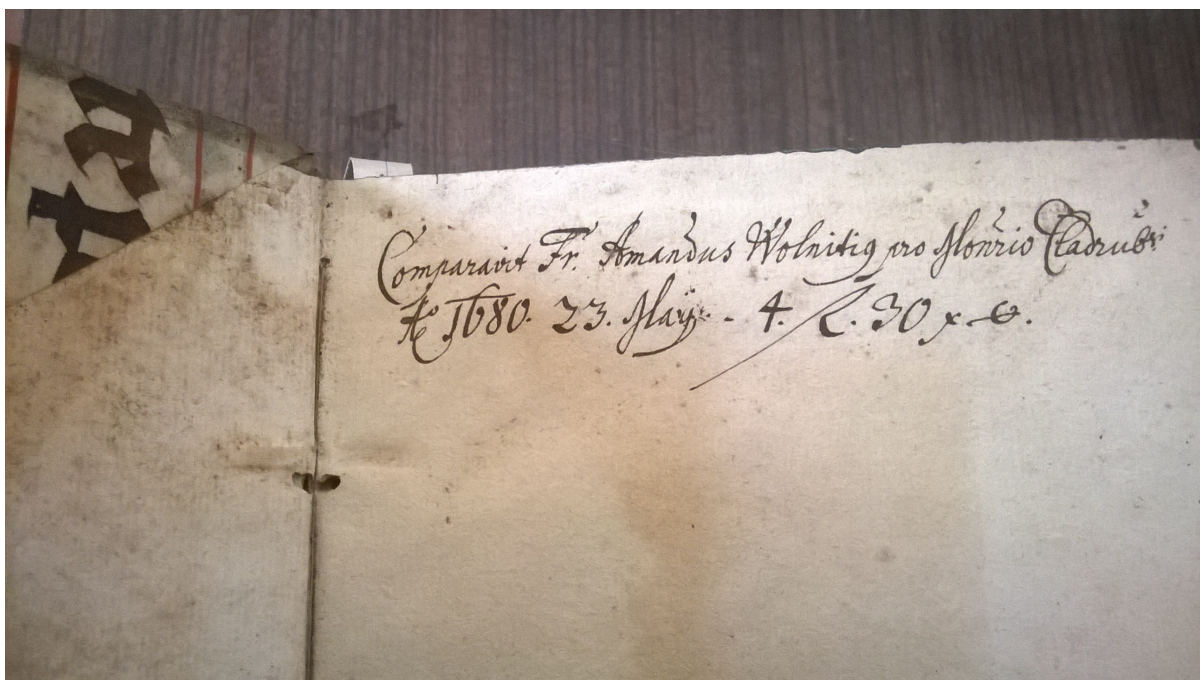 Comparavit Fr. Amandus Wolnitig pro Monrio Cladrub:
Ao 1680. 23. Maÿ. - 4. f. 30 x